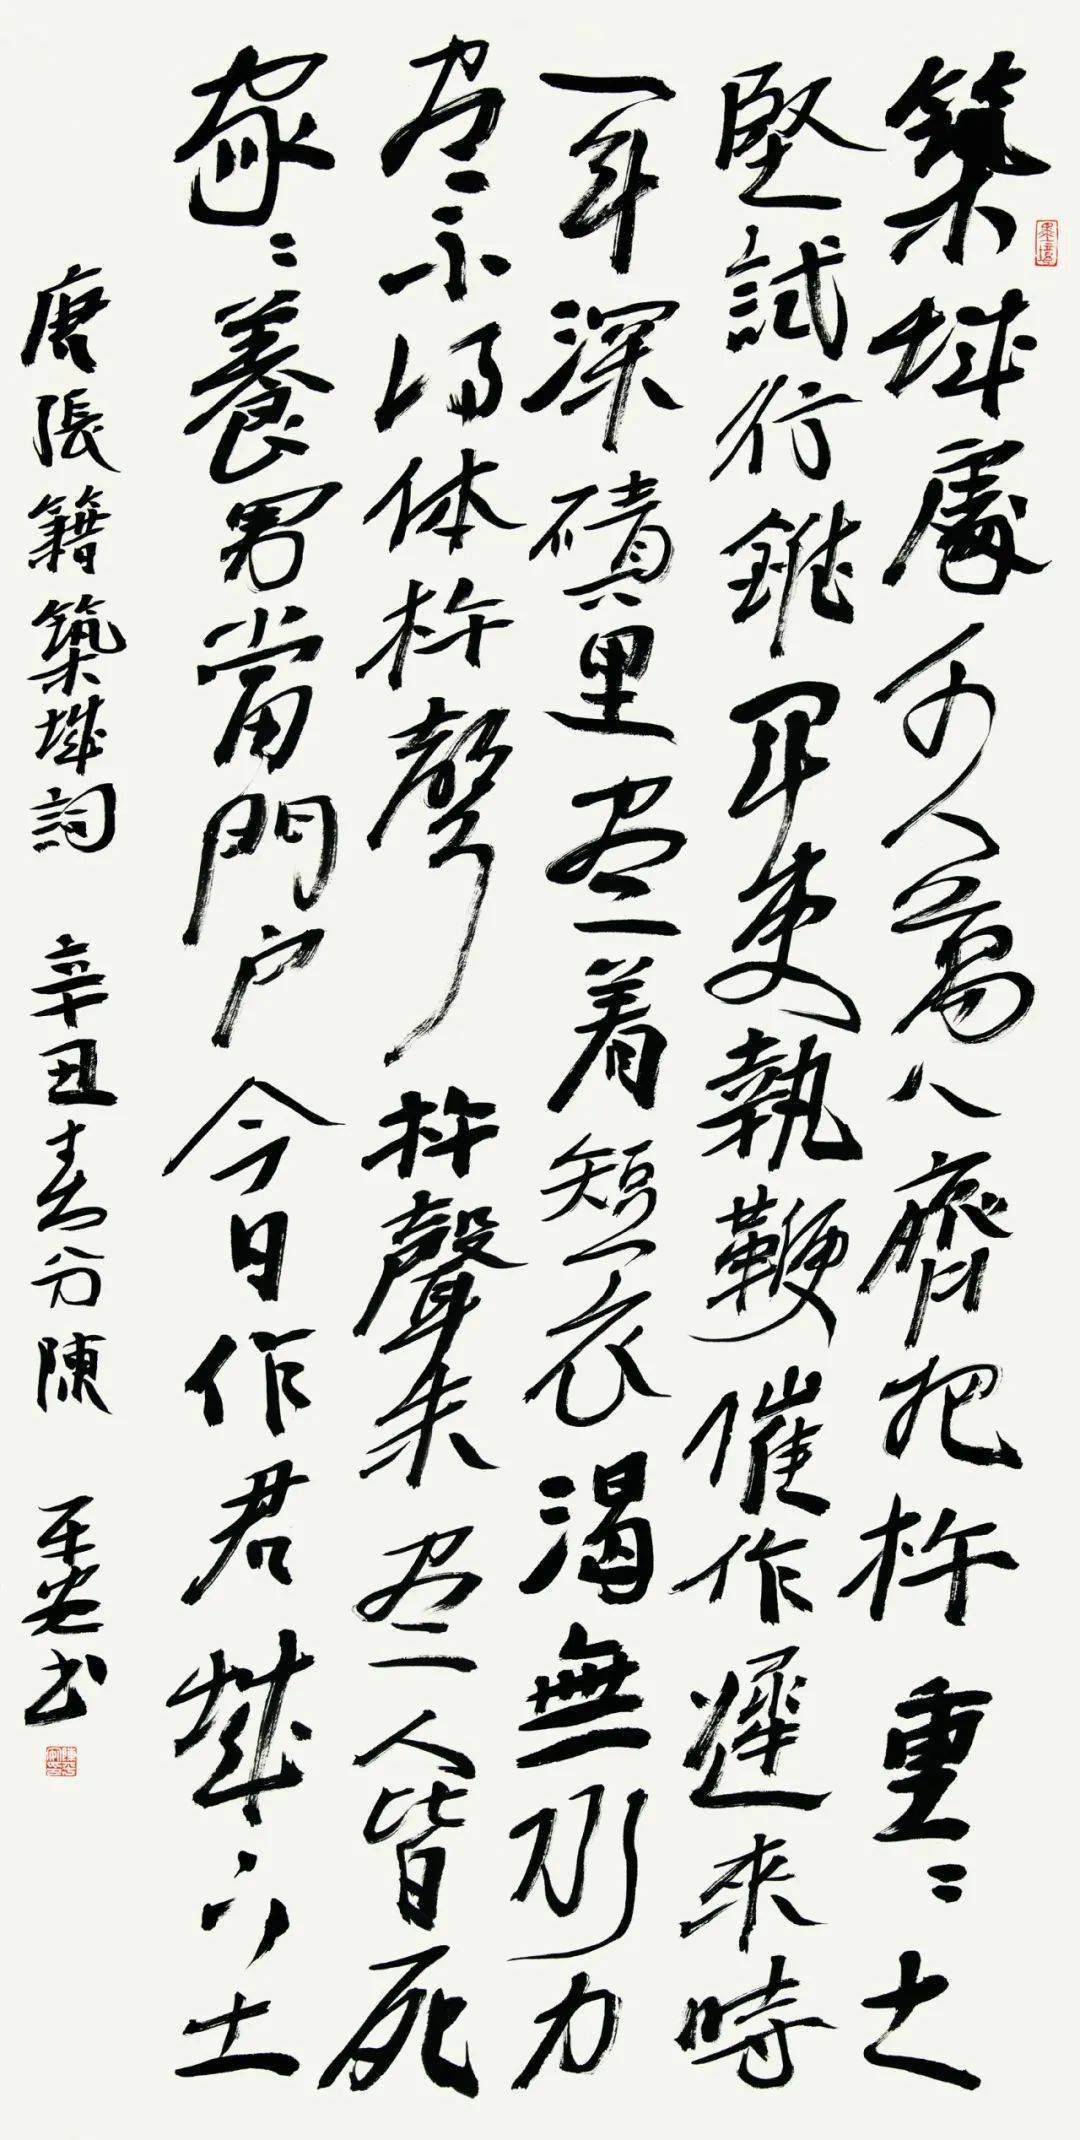 築城處千人萬人齊把杵重〻土
堅試行錐軍吏執鞭催作遲來時
一年深磧里尽着短衣渴無水力
尽不得休杵聲杵聲未尽人皆死
家〻養男當門户今日作君城下土
唐張籍築城詞 辛丑春分陳平安书